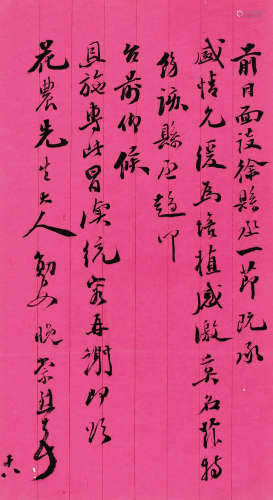 前日面談徐縣丞一節既承
盛情允緩為培植感激莫名茲特
飭該縣丞趨叩
台前仰候
具施專此冒瀆統容再謝即頌
花農先生大人勛安晚
十八